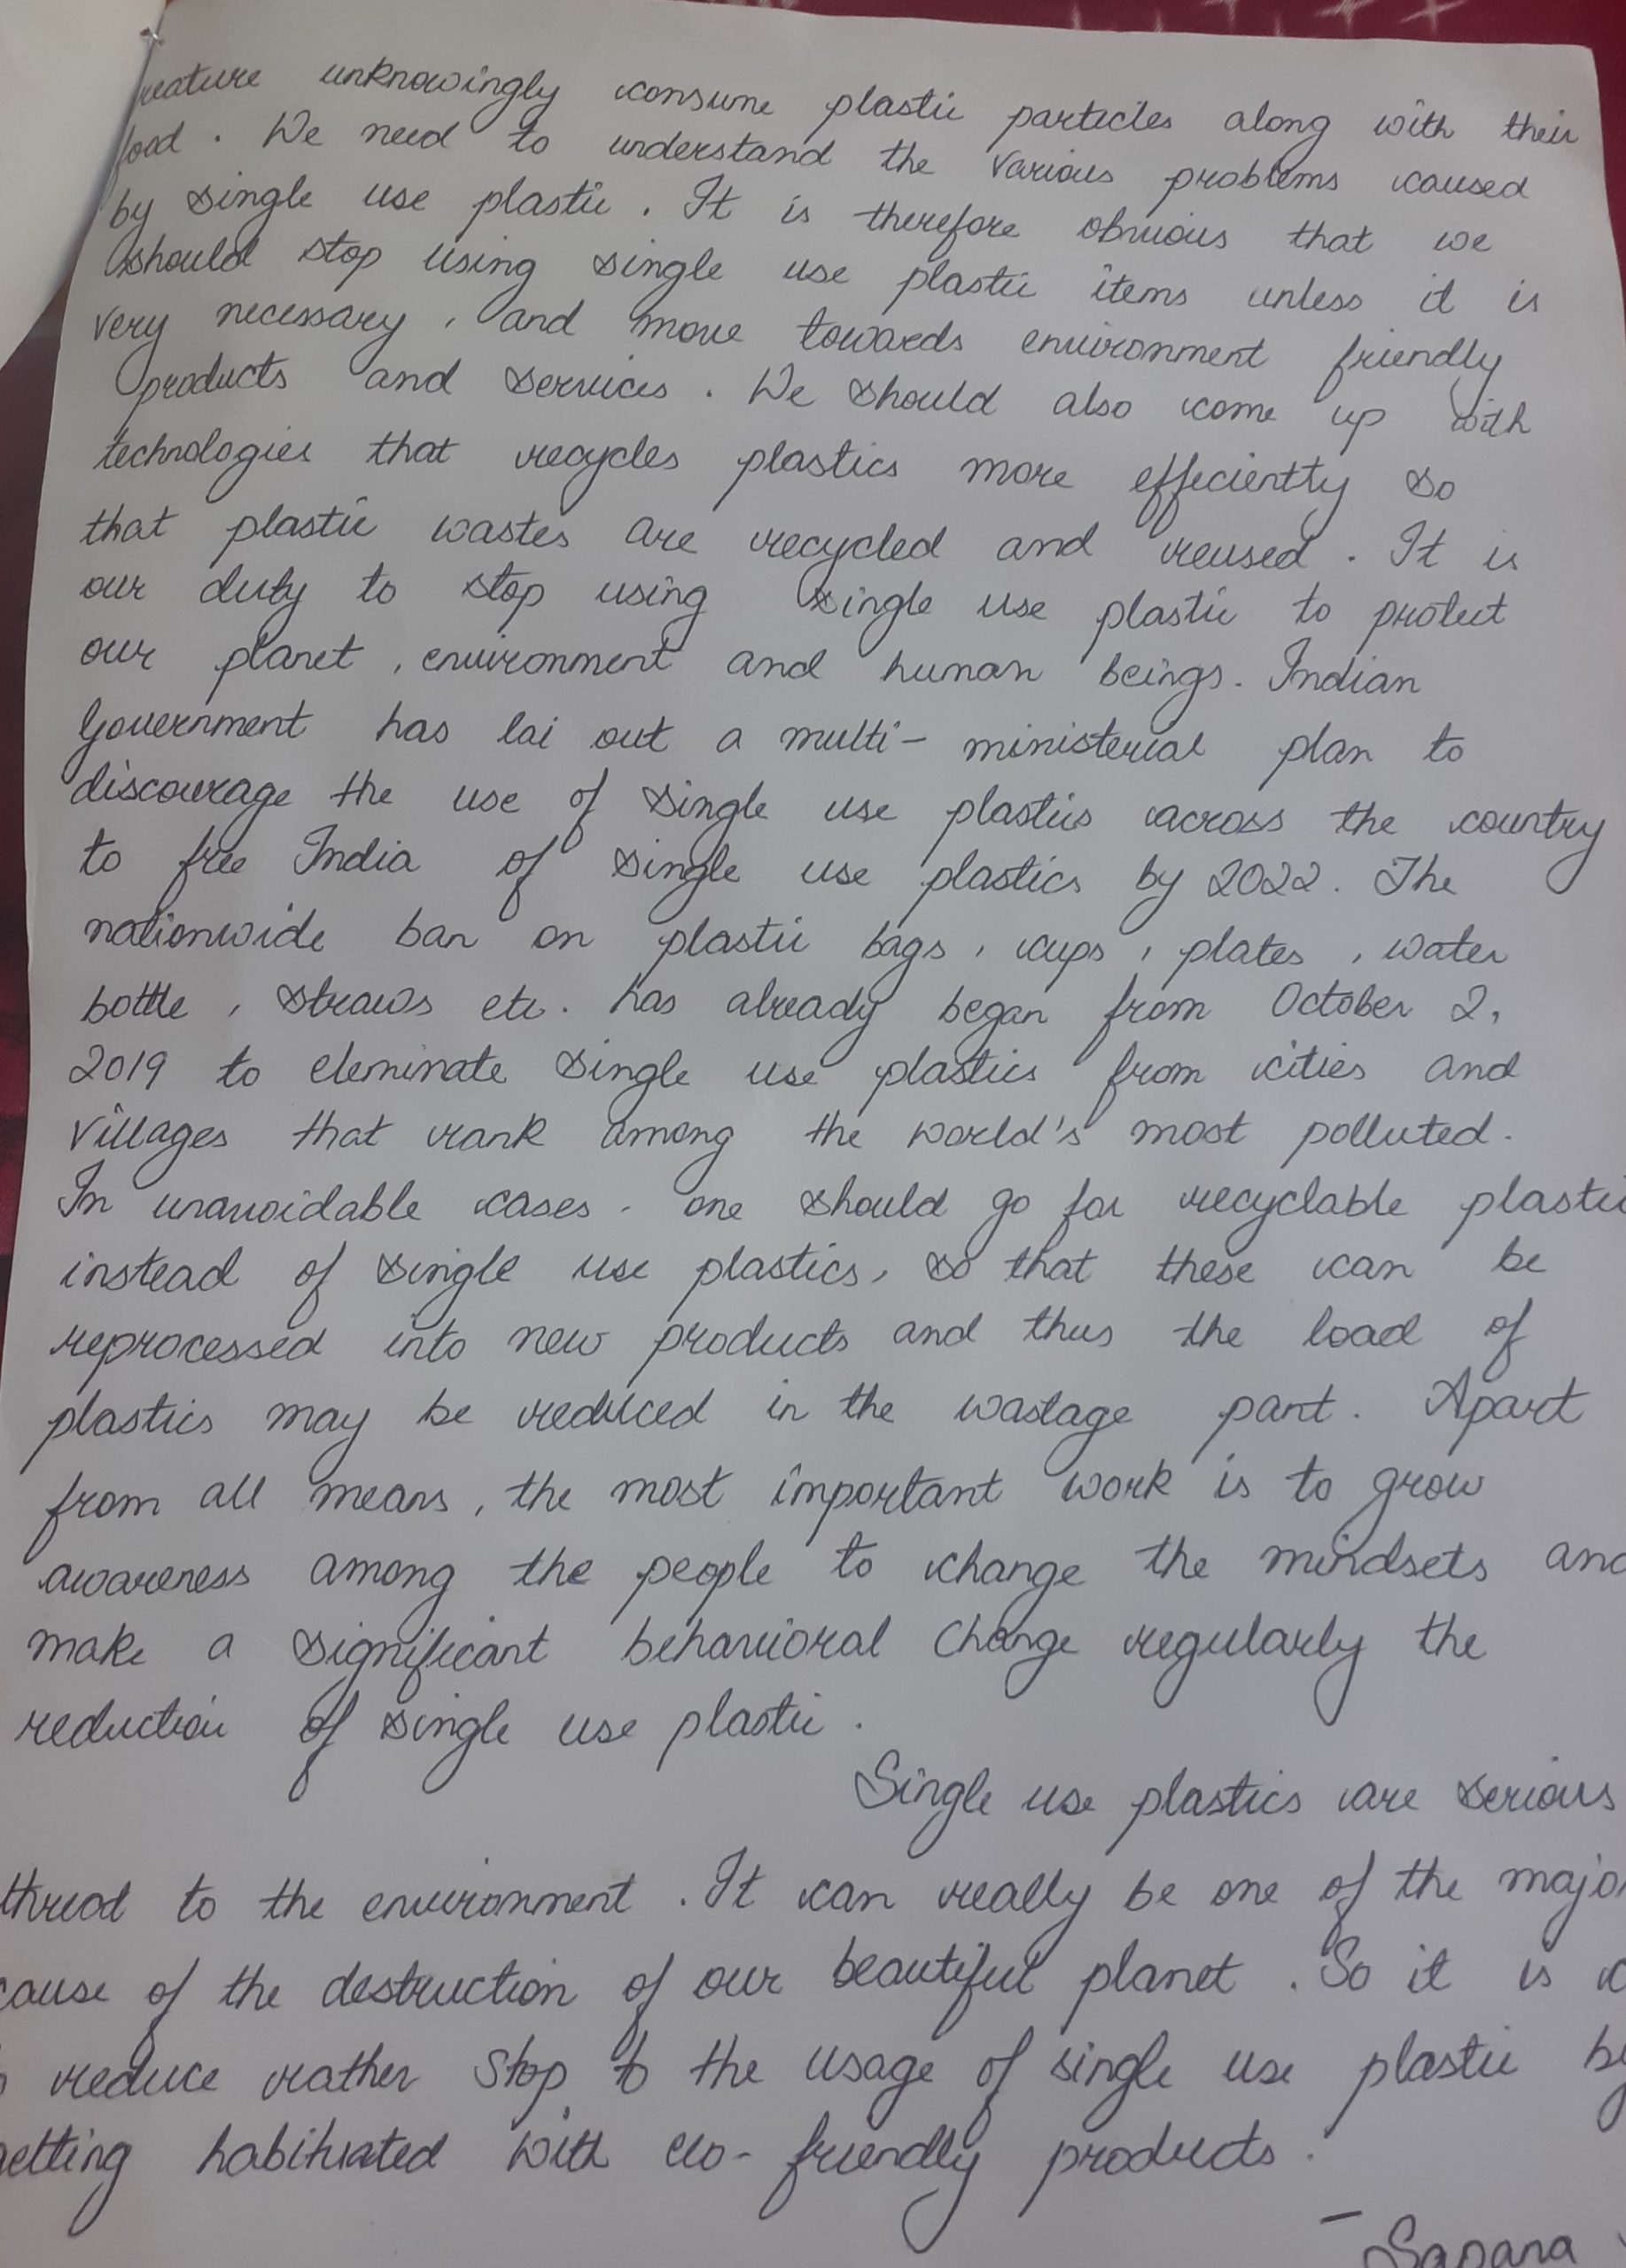 reature unknowingly consume plastic particles along with their
food. We need to understand the various problems caused
by single use plastic. It is therefore obvious that we
should stop using single use plastic items unless it is
very necessary, and move towards environment friendly
products and services. We should also come up with
technologies that recycles plastics more efficiently so
that plastic wastes are recycled and reused. It is
our duty to stop using single use plastic to protect
our planet, environment and human beings. Indian
Government has lai out a multi-ministerial plan to
discourage the use of single use plastics across the country
to free India of single use plastics by 2022. The
nationwide ban on plastic bags, cups, plates, water
bottle, straws etc. has already began from October 2,
2019 to eleminate single use plastics from cities and
villages that rank among the world's most polluted.
In unavoidable cases. one should go for recyclable plastic
instead of single use plastics, so that these can be
reprocessed into new products and thus the load of
plastics may be reduced in the wastage part. Apart
from all means, the most important work is to grow
awareness among the people to change the mindsets and
make a significant behavioral change regularly the
reduction of single use plastic.
Single use plastics are serious
threat to the environment. It can really be one of the major
cause of the destruction of our beautiful planet. So it is
reduce rather stop to the usage of single use plastic by
getting habituated with eco-friendly products.
- Sapana